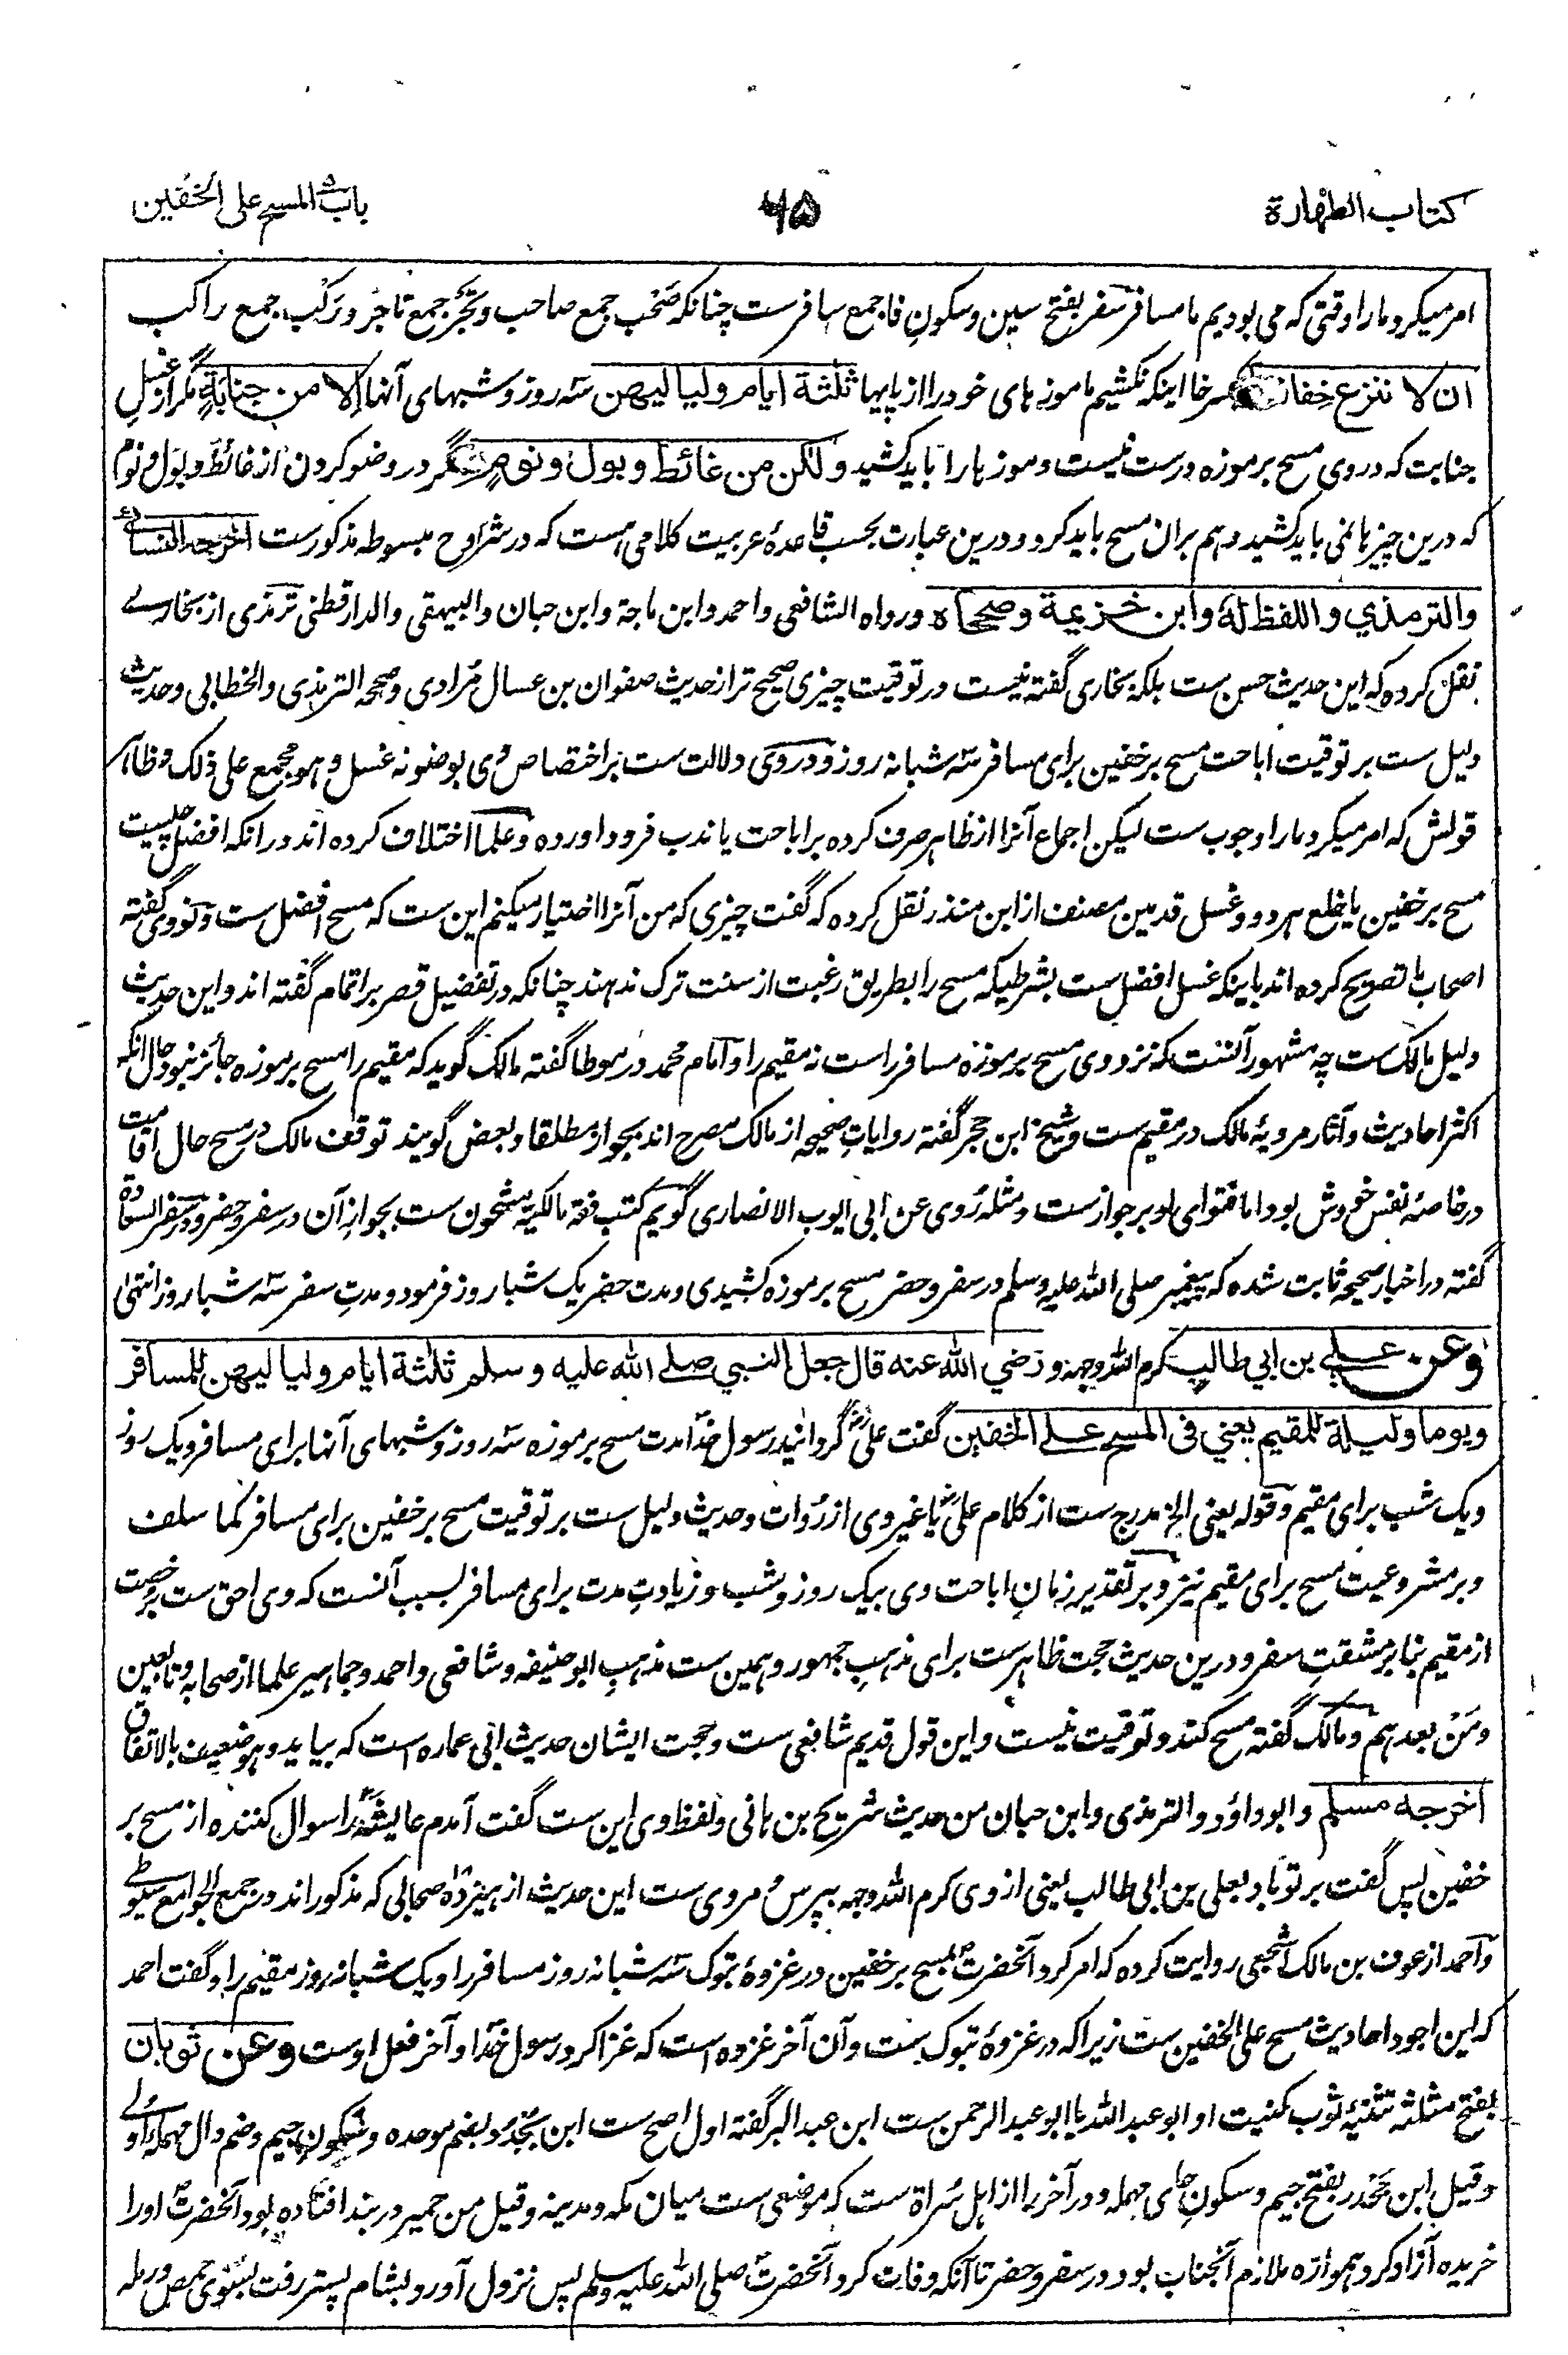 کتاب الطهارة
۶۵
باب المسح علی الخفین
امر میکرد ما را وقتی که می بودیم ما مسافر سفر بفتح سین و سکون فا جمع سافرست چنانکه صحب جمع صاحب و تجر جمع تاجر و رکب جمع راکب
ان لا ننزع خفافنا اینکه نکشیم ما موزه های خود را از پایها ثلثة ایام ولیالیهن سه روز و شبهای آنها الا من جنابة مگر از غسل
جنابت که در وی مسح بر موزه درست نیست و موزها را باید کشید ولکن من غائط وبول ونوم مگر در وضو کردن از غائط و بول و نوم
که درین چیزها نمی باید کشید و هم بران مسح باید کرد و درین عبارت بحسب قاعدهٔ عربیت کلامی است که در شروح مبسوطه مذکورست اخرجه النسائی
والترمذي واللفظ له وابن خزیمة وصححاه ورواه الشافعی واحمد وابن ماجة وابن حبان والبیهقی والدارقطنی ترمذی از بخاری
نقل کرده که این حدیث حسن ست بلکه بخاری گفته نیست در توقیت چیزی صحیح تر از حدیث صفوان بن عسال مرادی وصححه الترمذی والخطابی وحدیث
دلیل ست بر توقیت اباحت مسح بر خفین برای مسافر سه شبانه روز و در وی دلالت ست بر اختصاص وی بوضو نه غسل وهو مجمع علی ذلک وظاهر
قولش که امر میکرد ما را وجوب ست لیکن اجماع آنرا از ظاهر صرف کرده بر اباحت یا ندب فرود آورده و علما اختلاف کرده اند در انکه افضل چیست
مسح بر خفین یا خلع هر دو و غسل قدمین مصنف از ابن منذر نقل کرده که گفت چیزی که من آنرا اختیار میکنم این ست که مسح افضل ست و نووی گفته
اصحاب ما تصریح کرده اند باینکه غسل افضل ست بشرطیکه مسح را بطریق رغبت از سنت ترک ندهند چنانکه در تفضیل قصر بر اتمام گفته اند و این حدیث
دلیل مالک ست چه مشهور آنست که نزد وی مسح بر موزه مسافر راست نه مقیم را و امام محمد در موطا گفته مالک گوید که مقیم را مسح بر موزه جائز نبود حال انکه
اکثر احادیث و آثار مرویهٔ مالک در مقیم ست و شیخ ابن حجر گفته روایات صحیحه از مالک مصرح اند بجواز مطلقا و بعض گویند توقف مالک در مسح حال اقامت
در خاصهٔ نفس خودش بود اما فتوای او بر جوازست ومثله روی عن ابی ایوب الانصاری گویم کتب فقه مالکیه مشحون ست بجواز آن در سفر و حضر و در سفر السعادة
گفته در اخبار صحیحه ثابت شده که پیغمبر صلی الله علیه وسلم در سفر و حضر مسح بر موزه کشیدی و مدت حضر یک شبا روز فرمود و مدت سفر سه شبا روز انتهی
وعن علي بن ابي طالب کرم الله وجهه ورضي الله عنه قال جعل النبي صلی الله علیه وسلم ثلثة ایام ولیالیهن للمسافر
ویوما ولیلة للمقیم یعني فی المسح علی الخفین گفت علی گردانید رسول خدا مدت مسح بر موزه سه روز و شبهای آنها برای مسافر و یک روز
و یک شب برای مقیم و قوله یعنی الخ مدرج ست از کلام علی یا غیر وی از روات و حدیث دلیل ست بر توقیت مسح بر خفین برای مسافر کما سلف
و بر مشروعیت مسح برای مقیم نیز و بر تقدیر زمان اباحت وی بیک روز و شب و زیادت مدت برای مسافر بسبب آنست که وی احق ست برخصت
از مقیم بنابر مشقت سفر و درین حدیث حجت ظاهرست برای مذهب جمهور و همین ست مذهب ابو حنیفه و شافعی و احمد و جماهیر علما از صحابه و تابعین
ومن بعدهم و مالک گفته مسح کند و توقیت نیست و این قول قدیم شافعی ست و حجت ایشان حدیث ابی عماره است که بیاید وهو ضعیف بالاتفاق
اخرجه مسلم وابو داؤد والترمذی وابن حبان من حدیث شریح بن هانی ولفظ وی این ست گفت آمدم عایشه را سوال کننده از مسح بر
خفین پس گفت بر تو باد بعلی بن ابی طالب یعنی از وی کرم الله وجهه بپرس و مروی ست این حدیث از هیزده صحابی که مذکور اند در جمع الجوامع سیوطی
و احمد از عوف بن مالک اشجعی روایت کرده که امر کرد آنحضرت بمسح بر خفین در غزوهٔ تبوک سه شبانه روز مسافر را و یک شبانه روز مقیم را و گفت احمد
که این اجود احادیث مسح علی الخفین ست زیرا که در غزوهٔ تبوک ست و آن آخر غزوه است که غزا کرد رسول خدا و آخر فعل اوست وعن ثوبان
بفتح مثلثه تثنیهٔ ثوب کنیت او ابو عبد الله یا ابو عبد الرحمن ست ابن عبد البر گفته اول اصح ست ابن بجدد بضم موحده و سکون جیم و ضم دال مهمله اولی
وقیل ابن جحدر بفتح جیم و سکون حای مهمله و در آخر را از اهل سراة ست که موضعی ست میان مکه و مدینه وقیل من حمیر در بند افتاده بود آنحضرت او را
خریده آزاد کرد همواره ملازم آنجناب بود در سفر و حضر تا آنکه وفات کرد آنحضرت صلی الله علیه وسلم پس نزول آورد بشام پستر رفت بسوی حمص و رمله